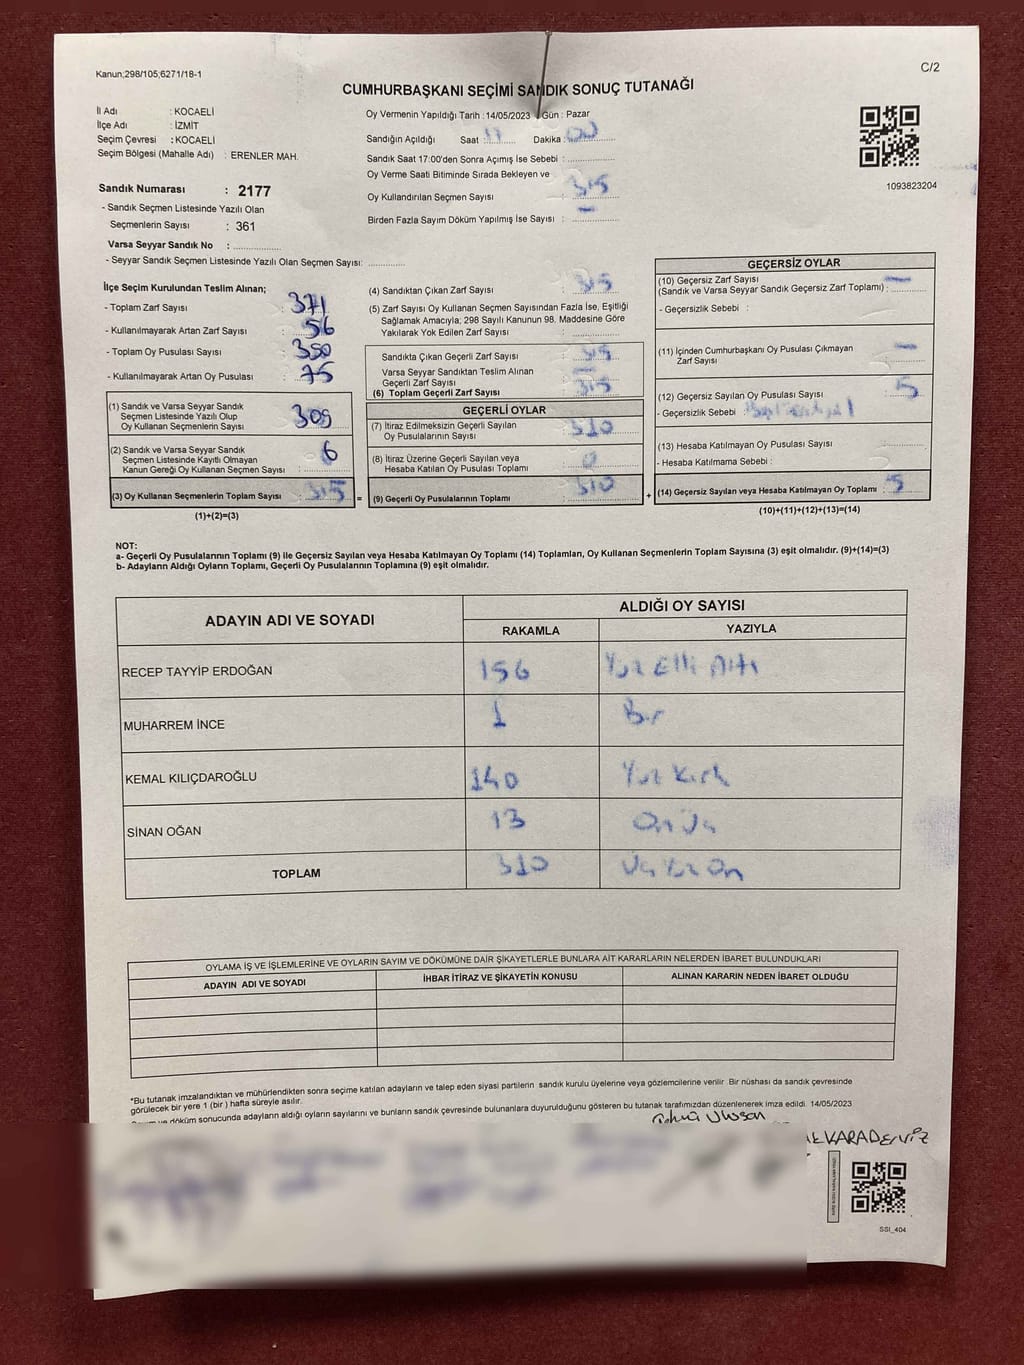 Kanun;298/105;6271/18-1
C/2
CUMHURBAŞKANI SEÇİMİ SANDIK SONUÇ TUTANAĞI
İl Adı : KOCAELİ
İlçe Adı : İZMİT
Seçim Çevresi : KOCAELİ
Seçim Bölgesi (Mahalle Adı) : ERENLER MAH.
Sandık Numarası : 2177
- Sandık Seçmen Listesinde Yazılı Olan
Seçmenlerin Sayısı : 361
Varsa Seyyar Sandık No : ..............
- Seyyar Sandık Seçmen Listesinde Yazılı Olan Seçmen Sayısı: ............
Oy Vermenin Yapıldığı Tarih : 14/05/2023 Gün : Pazar
Sandığın Açıldığı Saat : 17 Dakika : 00
Sandık Saat 17:00'den Sonra Açımış İse Sebebi : ..............
Oy Verme Saati Bitiminde Sırada Bekleyen ve
Oy Kullandırılan Seçmen Sayısı : 315
Birden Fazla Sayım Döküm Yapılmış İse Sayısı : —
1093823204
İlçe Seçim Kurulundan Teslim Alınan;
- Toplam Zarf Sayısı : 371
- Kullanılmayarak Artan Zarf Sayısı : 56
- Toplam Oy Pusulası Sayısı : 380
- Kullanılmayarak Artan Oy Pusulası : 75
(1) Sandık ve Varsa Seyyar Sandık
Seçmen Listesinde Yazılı Olup
Oy Kullanan Seçmenlerin Sayısı : 309
(2) Sandık ve Varsa Seyyar Sandık
Seçmen Listesinde Kayıtlı Olmayan
Kanun Gereği Oy Kullanan Seçmen Sayısı : 6
(3) Oy Kullanan Seçmenlerin Toplam Sayısı : 315 =
(1)+(2)=(3)
(4) Sandıktan Çıkan Zarf Sayısı : 315
(5) Zarf Sayısı Oy Kullanan Seçmen Sayısından Fazla İse, Eşitliği
Sağlamak Amacıyla; 298 Sayılı Kanunun 98. Maddesine Göre
Yakılarak Yok Edilen Zarf Sayısı : ..............
Sandıkta Çıkan Geçerli Zarf Sayısı : 315
Varsa Seyyar Sandıktan Teslim Alınan
Geçerli Zarf Sayısı : —
(6) Toplam Geçerli Zarf Sayısı : 315
GEÇERLİ OYLAR
(7) İtiraz Edilmeksizin Geçerli Sayılan
Oy Pusulalarının Sayısı : 310
(8) İtiraz Üzerine Geçerli Sayılan veya
Hesaba Katılan Oy Pusulası Toplamı : 0
(9) Geçerli Oy Pusulalarının Toplamı : 310 +
GEÇERSİZ OYLAR
(10) Geçersiz Zarf Sayısı
(Sandık ve Varsa Seyyar Sandık Geçersiz Zarf Toplamı) : —
- Geçersizlik Sebebi :
(11) İçinden Cumhurbaşkanı Oy Pusulası Çıkmayan
Zarf Sayısı : —
(12) Geçersiz Sayılan Oy Pusulası Sayısı : 5
- Geçersizlik Sebebi
(13) Hesaba Katılmayan Oy Pusulası Sayısı : ............
- Hesaba Katılmama Sebebi :
(14) Geçersiz Sayılan veya Hesaba Katılmayan Oy Toplamı : 5
(10)+(11)+(12)+(13)=(14)
NOT:
a- Geçerli Oy Pusulalarının Toplamı (9) ile Geçersiz Sayılan veya Hesaba Katılmayan Oy Toplamı (14) Toplamları, Oy Kullanan Seçmenlerin Toplam Sayısına (3) eşit olmalıdır. (9)+(14)=(3)
b- Adayların Aldığı Oyların Toplamı, Geçerli Oy Pusulalarının Toplamına (9) eşit olmalıdır.
ADAYIN ADI VE SOYADI
ALDIĞI OY SAYISI
RAKAMLA YAZIYLA
RECEP TAYYİP ERDOĞAN 156 Yüz Elli Altı
MUHARREM İNCE 1 Bir
KEMAL KILIÇDAROĞLU 140 Yüz Kırk
SİNAN OĞAN 13 On Üç
TOPLAM 310 Üç Yüz On
OYLAMA İŞ VE İŞLEMLERİNE VE OYLARIN SAYIM VE DÖKÜMÜNE DAİR ŞİKAYETLERLE BUNLARA AİT KARARLARIN NELERDEN İBARET BULUNDUKLARI
ADAYIN ADI VE SOYADI İHBAR İTİRAZ VE ŞİKAYETİN KONUSU ALINAN KARARIN NEDEN İBARET OLDUĞU
*Bu tutanak imzalandıktan ve mühürlendikten sonra seçime katılan adayların ve talep eden siyasi partilerin sandık kurulu üyelerine veya gözlemcilerine verilir. Bir nüshası da sandık çevresinde
görülecek bir yere 1 (bir) hafta süreyle asılır.
ve döküm sonucunda adayların aldığı oyların sayılarını ve bunların sandık çevresinde bulunanlara duyurulduğunu gösteren bu tutanak tarafımızdan düzenlenerek imza edildi. 14/05/2023
KARADENİZ
SSI_404